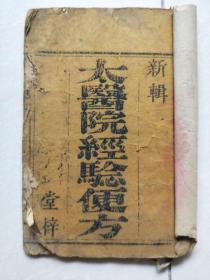 新輯
太醫院經驗便方
堂梓